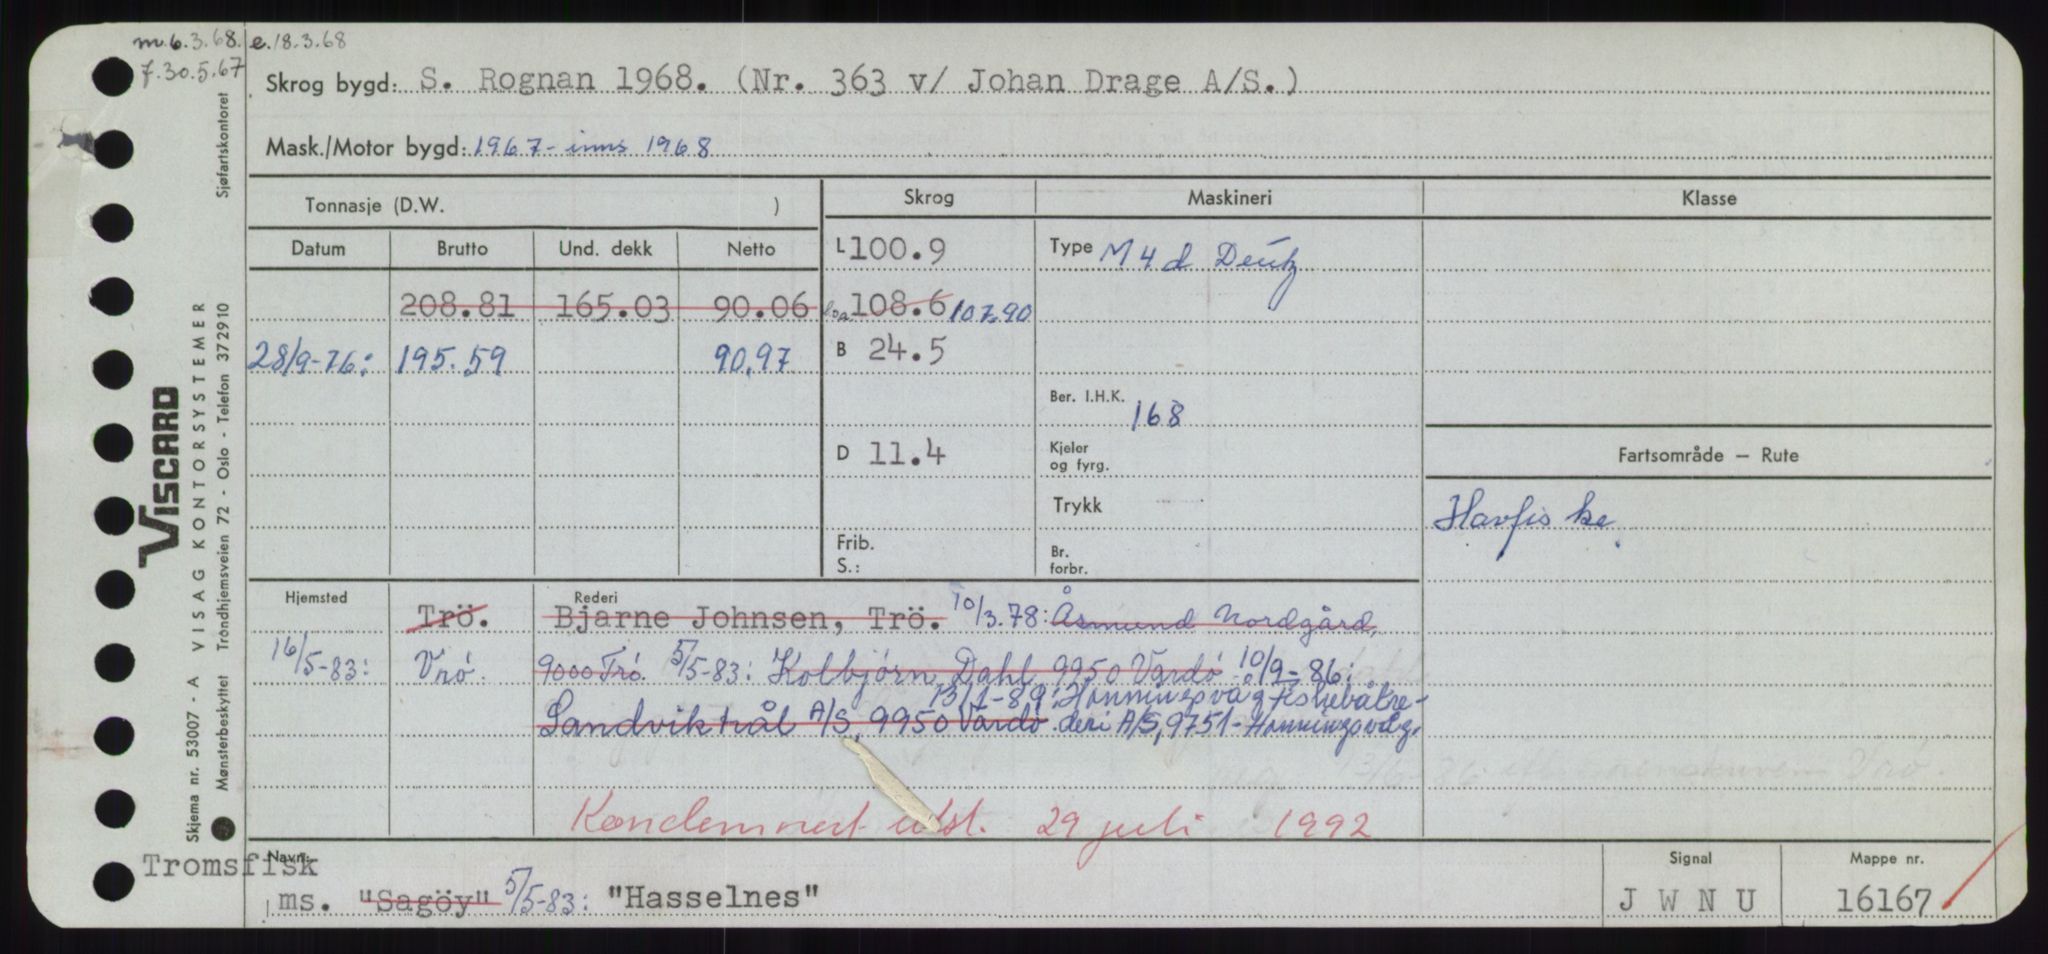 m.6.3.68. e.18.3.68
7.30.5.67
Skrog bygd: S. Rognan 1968. (Nr. 363 v/ Johan Drage A/S.)
Mask./Motor bygd: 1967 - inns 1968
Tonnasje (D.W. ) Skrog Maskineri Klasse
Datum Brutto Und. dekk Netto L 100.9 Type M 4 d Deutz
208.81 165.03 90.06 loa 108.6 107.90
28/9-76: 195.59 90.97 B 24.5
Ber. I.H.K. 168
D 11.4 Kjeler
og fyrg.
Fartsområde — Rute
Trykk
Havfiske
Frib.
S.:
Br.
forbr.
Hjemsted Rederi
Trö. Bjarne Johnsen, Trö. 10/3.78: Åsmund Nordgård,
16/5-83: Vrö. 9000 Trö. 5/5-83: Kolbjørn Dahl, 9950 Vardö. 10/9-86:
13/1-89: Honningsvåg fiskebåtre-
Sandviktrål A/S, 9950 Vardö. deri A/S, 9751-Honningsvåg.
13/6-86 Vrö.
Kondemnert utst. 29 juli 1992
Navn: Signal Mappe nr.
Tromsfisk
ms. "Sagöy" 5/5-83: "Hasselnes" J W N U 16167
Sjøfartskontoret
VISCARD
Skjema nr. 53007 - A VISAG KONTORSYSTEMER
Mønsterbeskyttet Trondhjemsveien 72 - Oslo - Telefon 372910